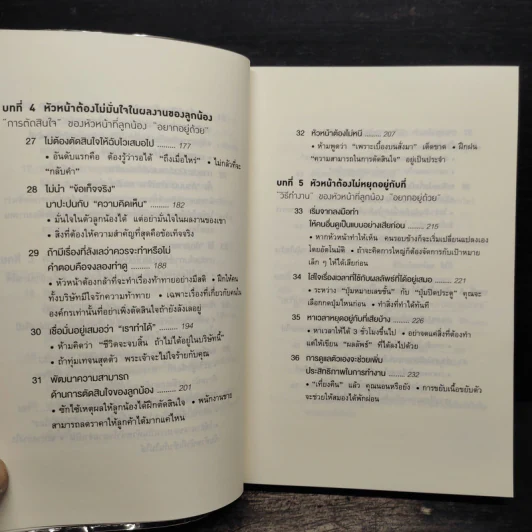 บทที่ 4 หัวหน้าต้องไม่มั่นใจในผลงานของลูกน้อง
"การตัดสินใจ" ของหัวหน้าที่ลูกน้อง "อยากอยู่ด้วย"
27 ไม่ต้องตัดสินใจให้ฉับไวเสมอไป 177
• อันดับแรกคือ ต้องรู้ว่ารอได้ "ถึงเมื่อไหร่" • ไม่กลัวที่จะ
"กลับคำ"
28 ไม่นำ "ข้อเท็จจริง"
มาปะปนกับ "ความคิดเห็น" 182
• มั่นใจในตัวลูกน้องได้ แต่อย่ามั่นใจในผลงานของเขา
• สิ่งที่ต้องให้ความสำคัญที่สุดคือข้อเท็จจริง
29 ถ้ามีเรื่องที่ลังเลว่าควรจะทำหรือไม่
คำตอบคือจงลองทำดู 188
• หัวหน้าต้องกล้าที่จะทำเรื่องท้าทายอย่างมีสติ • ฝึกให้คน
ทั้งบริษัทมีใจรักความท้าทาย • เฉพาะเรื่องที่เกี่ยวกับคนใน
องค์กรเท่านั้นที่อย่าเพิ่งตัดสินใจถ้ายังลังเลอยู่
30 เชื่อมั่นอยู่เสมอว่า "เราทำได้" 194
• ห้ามคิดว่า "ชีวิตจะจบสิ้น ถ้าไม่ได้อยู่ในบริษัทนี้"
• ถ้าทุ่มเทจนสุดตัว พระเจ้าจะไม่ใจร้ายกับคุณ
31 พัฒนาความสามารถ
ด้านการตัดสินใจของลูกน้อง 201
• ซักไซ้เหตุผลให้ลูกน้องได้ฝึกตัดสินใจ • พนักงานขาย
สามารถลดราคาให้ลูกค้าได้มากแค่ไหน
32 หัวหน้าต้องไม่หนี 207
• ห้ามพูดว่า "เพราะเบื้องบนสั่งมา" เด็ดขาด • ฝึกฝน
"ความสามารถในการตัดสินใจ" อยู่เป็นประจำ
บทที่ 5 หัวหน้าต้องไม่หยุดอยู่กับที่
"วิธีทำงาน" ของหัวหน้าที่ลูกน้อง "อยากอยู่ด้วย"
33 เริ่มจากลงมือทำ
ให้คนอื่นดูเป็นแบบอย่างเสียก่อน 215
• หากหัวหน้าทำให้เห็น คนรอบข้างก็จะเริ่มเปลี่ยนแปลงเอง
โดยอัตโนมัติ • ถ้าจะคิดการใหญ่ก็ต้องจัดการกับเป้าหมาย
เล็ก ๆ ให้ได้เสียก่อน
34 ใส่ใจเรื่องเวลาที่ใช้กับผลลัพธ์ที่ได้อยู่เสมอ 221
• ระหว่าง "ปุ่มหมายเลขชั้น" กับ "ปุ่มปิดประตู" คุณจะ
เลือกกดปุ่มไหนก่อน • ทำสิ่งที่ทำได้ทันที
35 หาเวลาหยุดอยู่กับที่เสียบ้าง 226
• หาเวลาให้ได้ 3 ชั่วโมงขึ้นไป • อย่าจดแค่สิ่งที่ต้องทำ
แต่ให้เขียน "ผลลัพธ์" ที่ได้ลงไปด้วย
36 การดูแลตัวเองจะช่วยเพิ่ม
ประสิทธิภาพในการทำงาน 232
• "เที่ยงคืน" แล้ว คุณนอนหรือยัง • การขยับเนื้อขยับตัว
จะช่วยให้สมองได้พักผ่อน